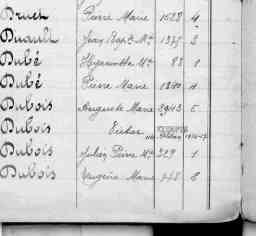 Druet Pierre Marie 1528 4
Duault Jean Bapt. Me 1375 2
Dubé Hyacinthe Me 83 1
Dubé Pierre Marie 1240 4
Dubois Auguste Marie 2943 5
Dubois
Dubois Julien Pierre Me 329 1
Dubois Eugène Marie 8